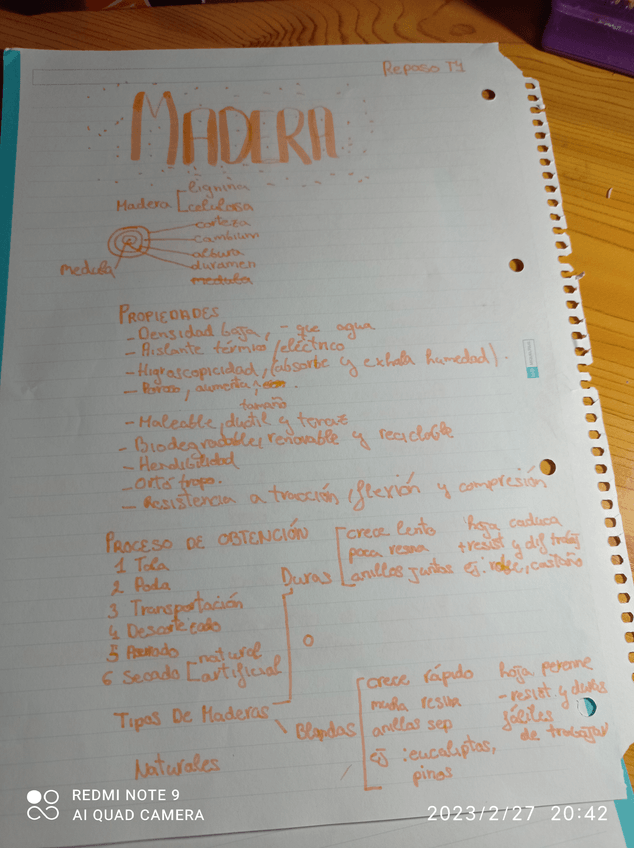 Repaso T4
MADERA
Madera
lignina
celulosa
corteza
cambium
albura
duramen
medula
medula
PROPIEDADES
- Densidad baja, - que agua
- Aislante térmico/eléctrico
- Higroscopicidad, (absorbe y exhala humedad).
- Poroso, aumenta
tamaño
- Maleable, ductil y tenaz
- Biodegradable, renovable y reciclable
- Hendibilidad
- Ortotropo.
- Resistencia a tracción, flexión y compresión
PROCESO DE OBTENCIÓN
1 Tala
2 Poda
3 Transportación
4 Descortezado
5
6 Secado natural
artificial
Tipos De Maderas
Duras
crece lento hoja caduca
poca resina + resist y dif trabaj
anillos juntos ej: roble, castaño
o
Blandas
crece rápido hoja perenne
mucha resina - resist y duras
anillos sep fáciles
de trabajar
ej: eucaliptos,
pinos
Naturales
REDMI NOTE 9
AI QUAD CAMERA
2023/2/27 20:42